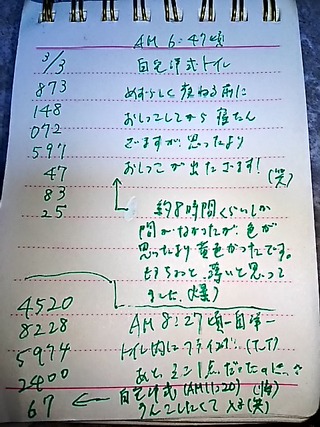 AM 6:47頃
3/3 自宅洋式トイレ
873 めずらしく寝る前に
148 おしっこしてから寝たん
072 ですが、思ったより
597 おしっこが出たでます!
47 (笑)
83
25 約8時間くらいしか
間がなかったが、色が
思ったより黄色かったです。
もうちょっと、薄いと思って
ました。(爆)
4520 AM 8:27頃自洋
8228
5974 トイレ内に
2400 あと、だったのに
67 ← 自宅洋式 (AM11:20)
(笑)